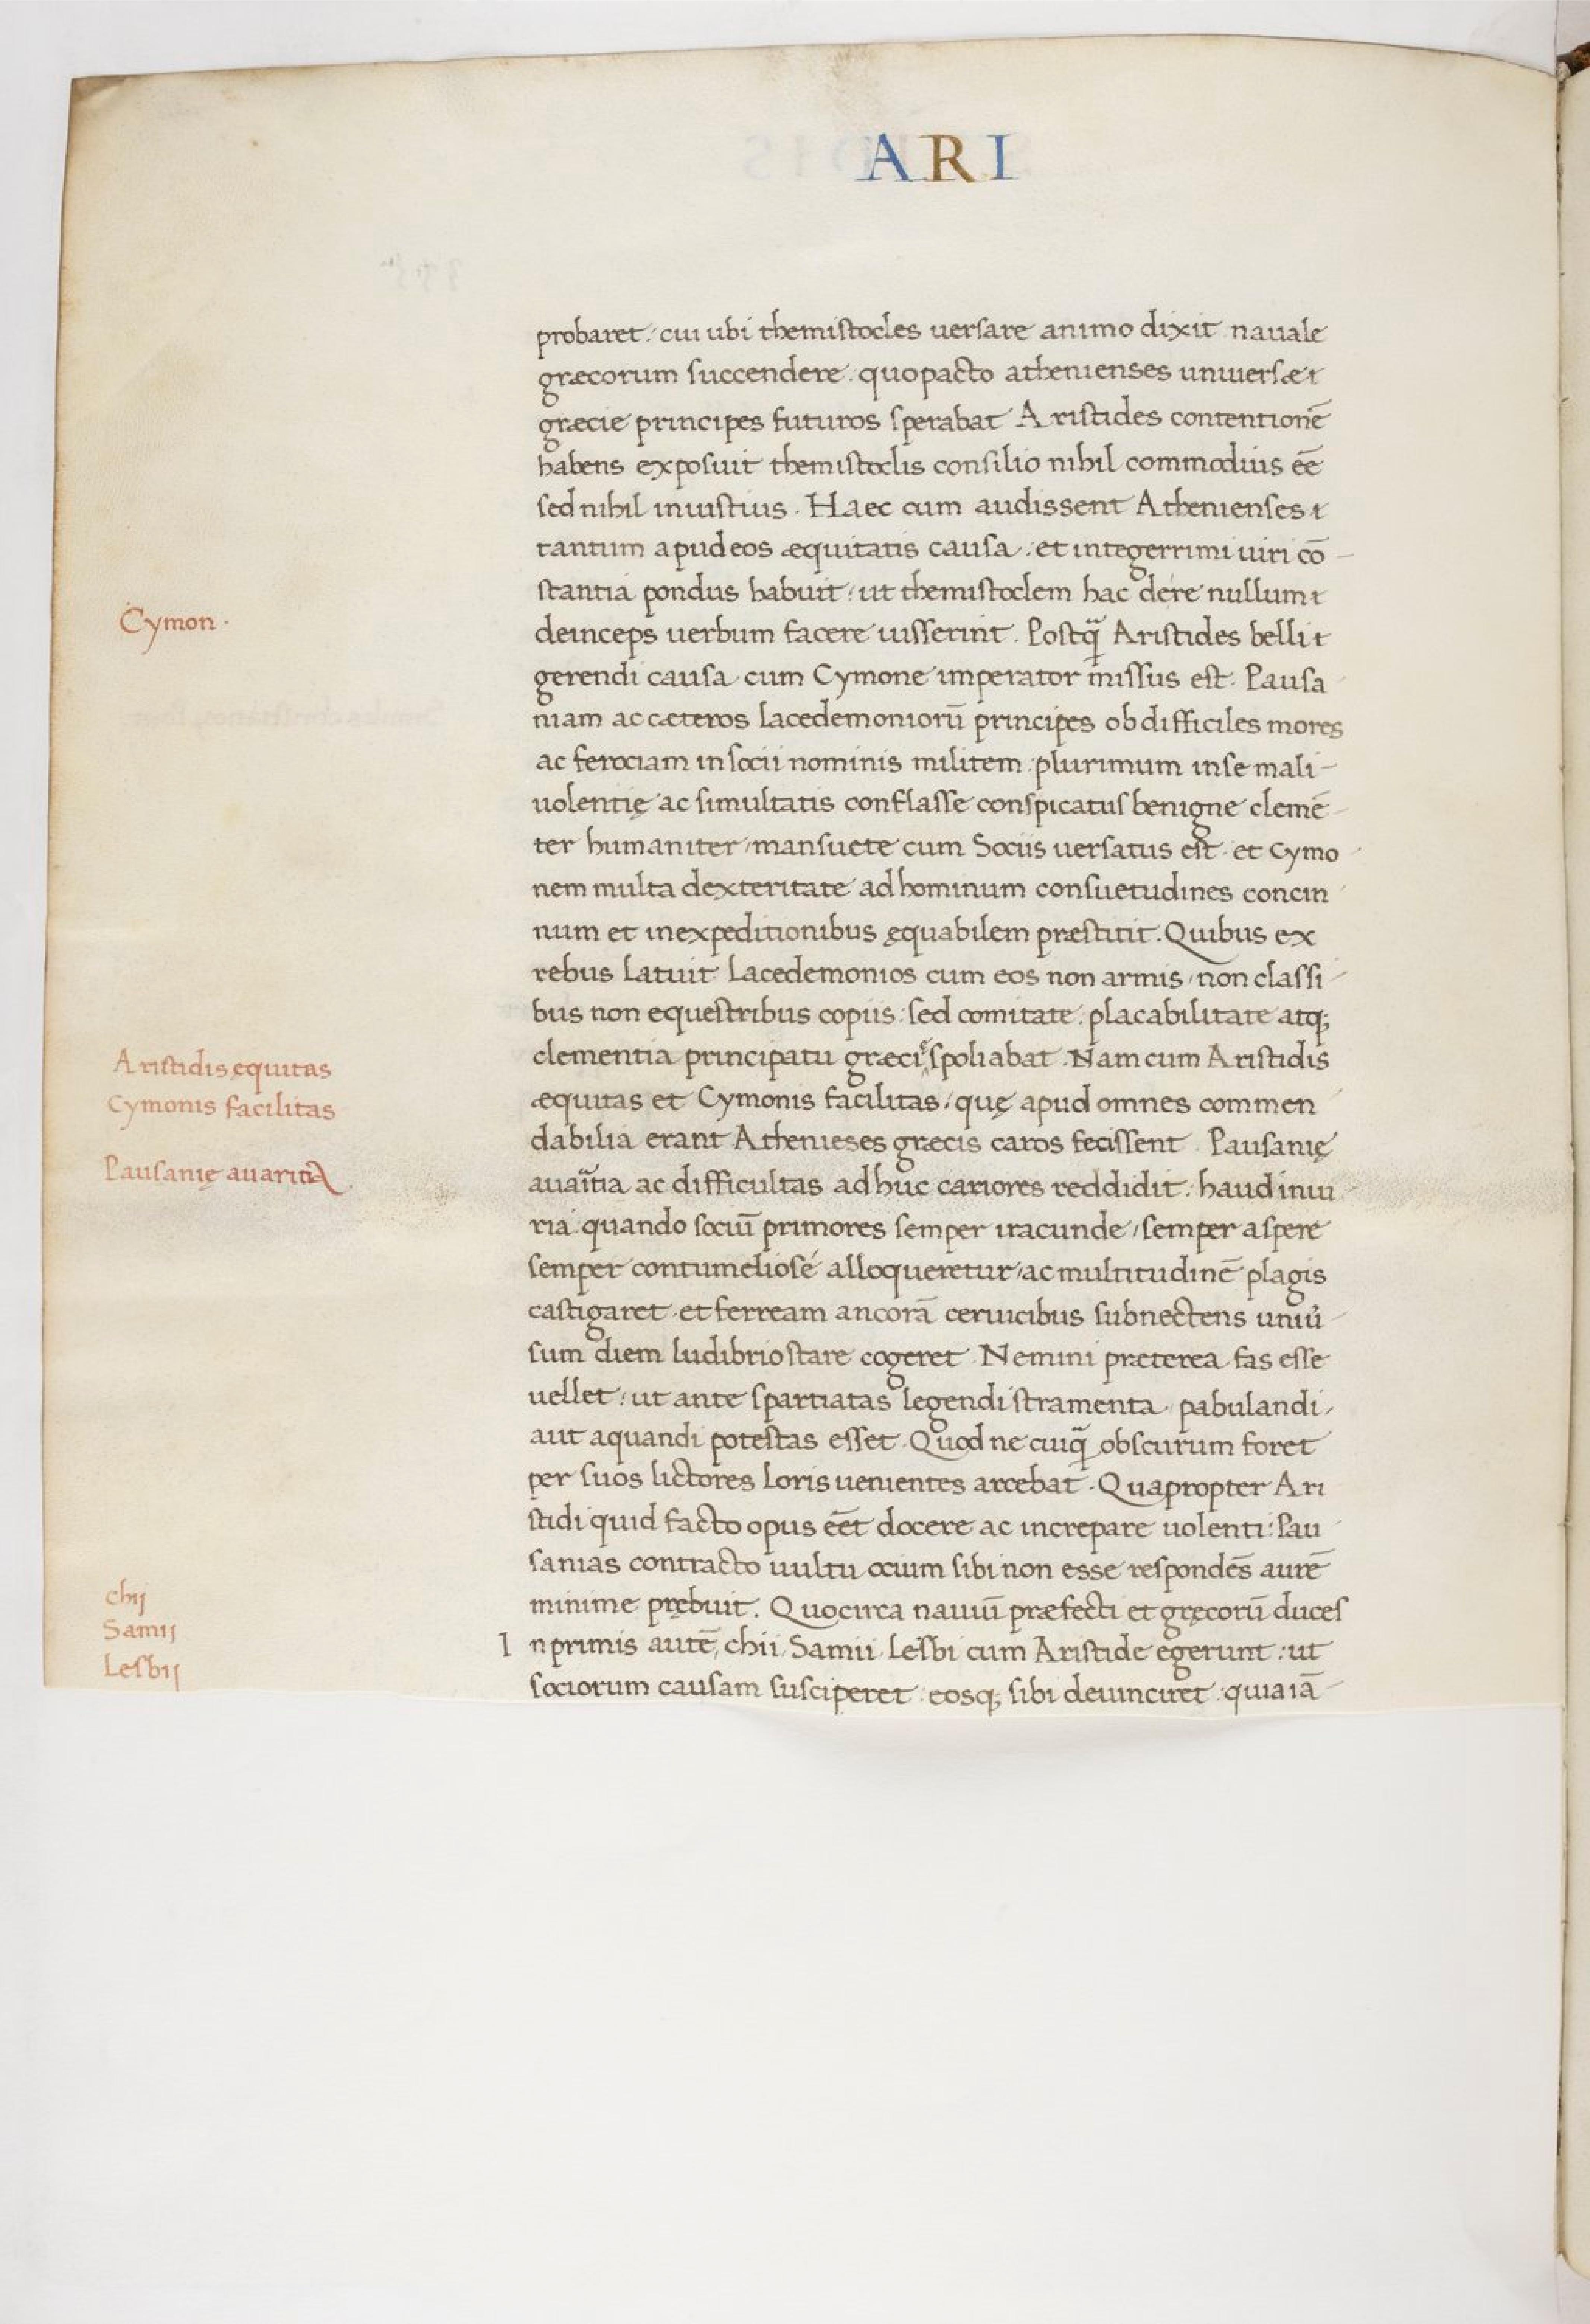 ARI
probaret: cui ubi themistocles uersare animo dixit nauale
græcorum succendere: quo pacto athenienses uniuersæ
græcie principes futuros sperabat Aristides contentionē
habens exposuit themistoclis consilio nihil commodius eē
sed nihil iniustius. Haec cum audissent Athenienses
tantum apud eos æquitatis causa: et integerrimi uiri cō-
stantia pondus habuit: ut themistoclem hac de re nullum
Cymon.
deinceps uerbum facere iusserint. Postq̄ Aristides belli
gerendi causa cum Cymone imperator missus est. Pausa-
niam ac cæteros lacedemoniorū principes ob difficiles mores
ac ferociam in socii nominis militem: plurimum in se mali-
uolentię ac simultatis conflasse conspicatus benigne clemē-
ter humaniter, mansuete cum Sociis uersatus est. et Cymo-
nem multa dexteritate ad hominum consuetudines concin-
num et in expeditionibus ęquabilem præstitit. Quibus ex
rebus latuit lacedemonios cum eos non armis, non classi-
bus non equestribus copiis: sed comitate: placabilitate atq;
Aristidis ęquitas
clementia principatu greciȩ spoliabat. Nam cum Aristidis
Cymonis facilitas
æquitas et Cymonis facilitas, quę apud omnes commen-
dabilia erant Athenieses græcis caros fecissent. Pausanię
Pausanię auaritia
auaritia ac difficultas adhuc cariores reddidit: haud iniu-
ria quando sociū primores semper iracunde, semper aspere
semper contumeliosé alloqueretur, ac multitudinē plagis
castigaret. et ferream ancorā ceruicibus subnectens uniu͛-
sum diem ludibrio stare cogeret. Nemini præterea fas esse
uellet: ut ante spartiatas legendi stramenta pabulandi,
aut aquandi potestas esset. Quod ne cuiq̄ obscurum foret
per suos lictores loris uenientes arcebat. Quapropter Ari-
stidi quid facto opus eēt docere ac increpare uolenti: Pau-
sanias contracto uultu ocium sibi non esse respondēs aurē
chij
minime prębuit. Quocirca nauiū præfecti et gręcorū duces
Samij
Inprimis autē, chii, Samii, Lesbi cum Aristide egerunt: ut
Lesbij
sociorum causam susciperet: eosq; sibi deuinciret: quia iā-